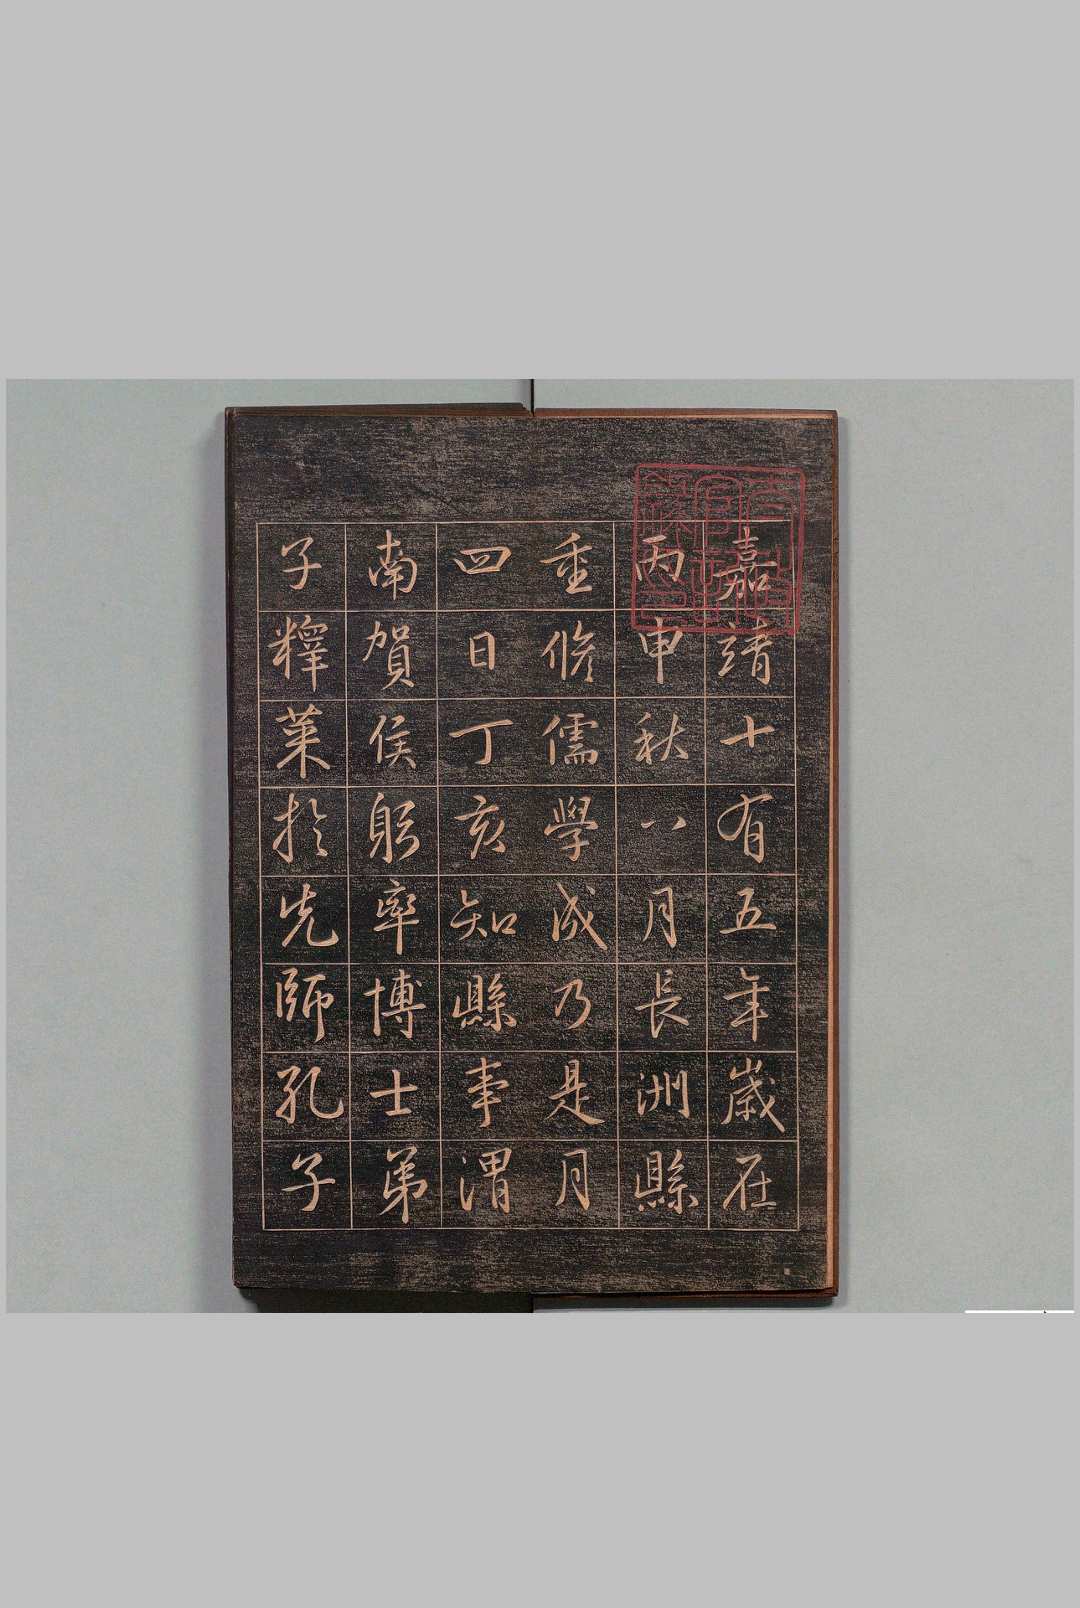 嘉靖十有五年歲在
丙申秋八月長洲縣
重脩儒學成乃是月
四日丁亥知縣事渭
南賀侯躬率博士弟
子釋菜於先師孔子